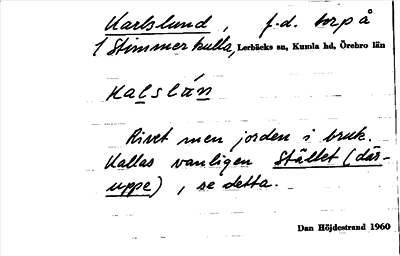 Karlslund, f.d. torp å
1 Stimmerkulla, Lerbäcks sn, Kumla hd, Örebro län
Kalslán
Rivet men jorden i bruk.
Kallas vanligen Stället (där-
uppe), se detta.
Dan Höjdestrand 1960